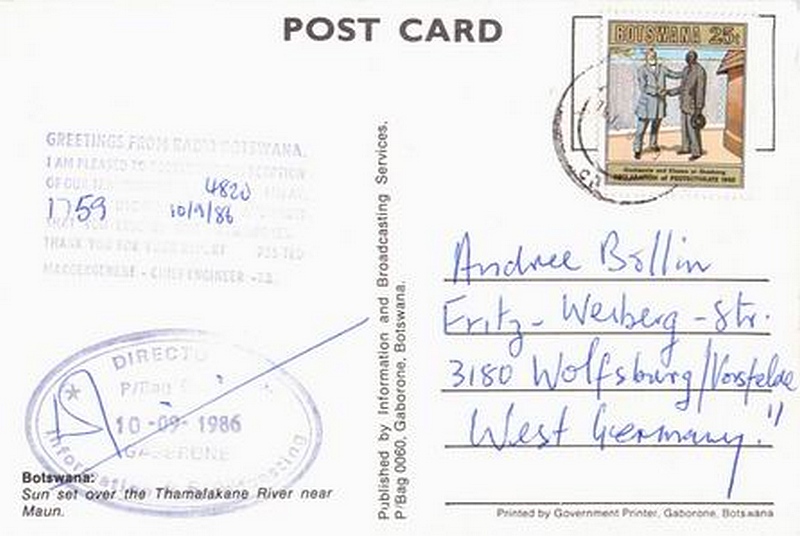 POST CARD
BOTSWANA 25c
DECLARATION of PROTECTORATE
GREETINGS FROM RADIO BOTSWANA.
I AM PLEASED TO
OF OUR
4820
1759
10/9/86
THANK YOU FOR YOUR
- CHIEF ENGINEER -
DIRECTO
P/Bag
10-09-1986
GABERONE
Information & Broadcasting
Botswana:
Sun set over the Thamalakane River near
Maun.
Published by Information and Broadcasting Services.
P/Bag 0060, Gaborone, Botswana.
Andree Bollin
Fritz-Weiberg-Str.
3180 Wolfsburg/Vorsfelde
West Germany."
Printed by Government Printer, Gaborone, Botswana